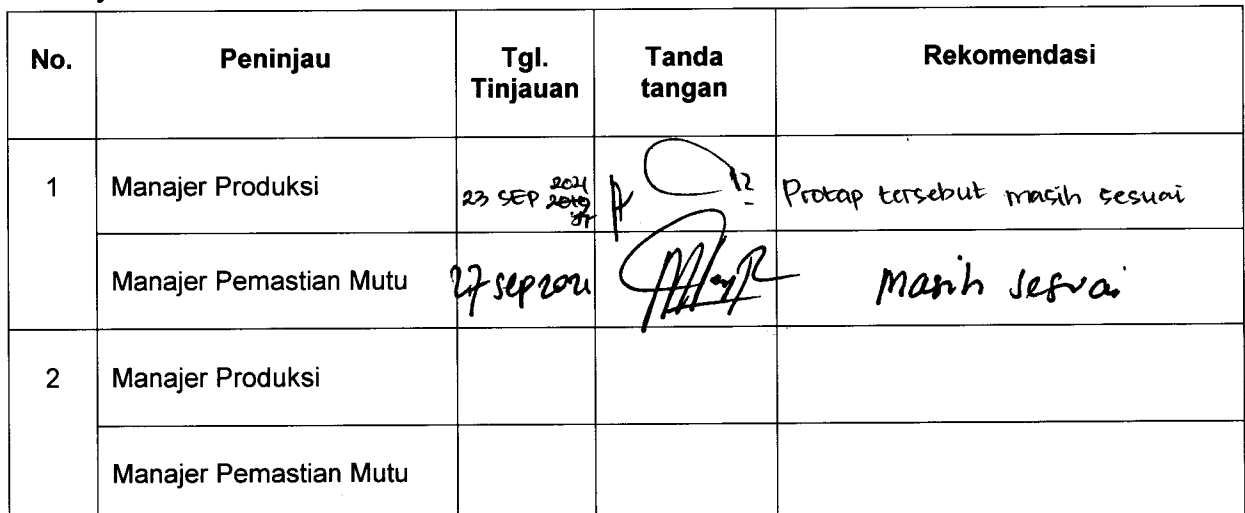 No.
Peninjau
Tgl.
Tinjauan
Tanda
tangan
Rekomendasi
1
Manajer Produksi
23 SEP 2019
2021
Protap tersebut masih sesuai
Manajer Pemastian Mutu
27 sep 2021
masih sesuai
2
Manajer Produksi
Manajer Pemastian Mutu